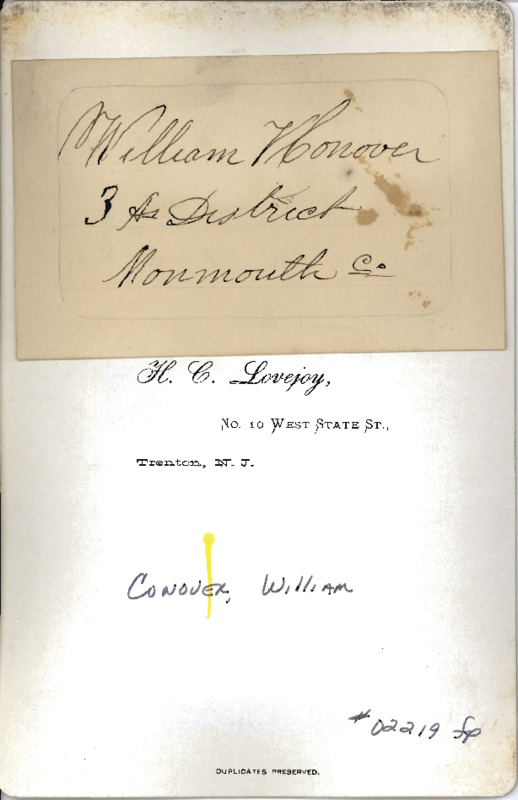 William H Conover
3 As District
Monmouth Co.
H. C. Lovejoy,
No. 10 West State St.,
Trenton, N. J.
Conover, William
#02219 sp
DUPLICATES PRESERVED.